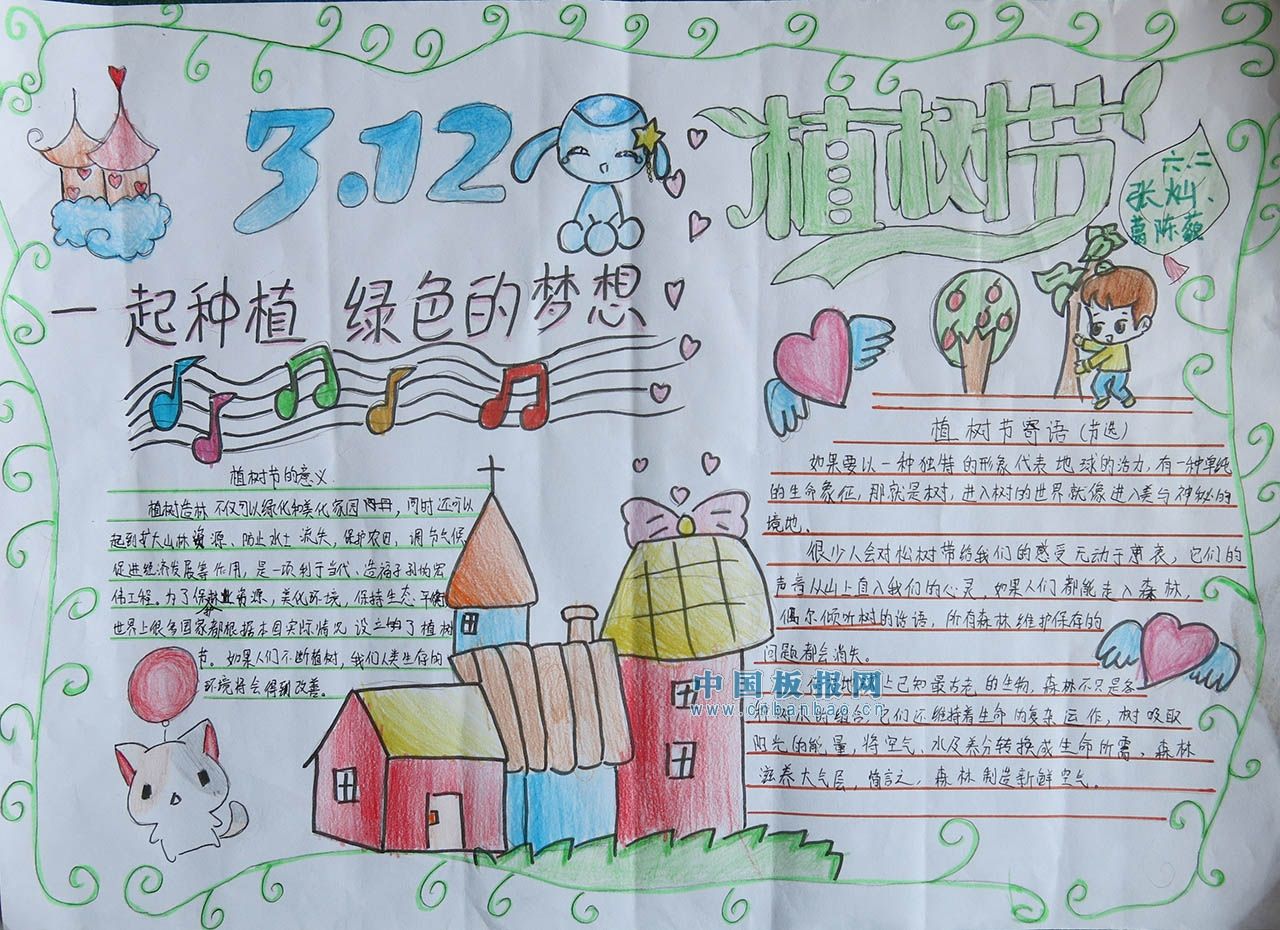 3.12
植树节
六二
张灿、
葛陈薇
一起种植 绿色的梦想
植树节的意义
植树造林不仅可以绿化和美化家园，同时还可以
起到扩大山林资源、防止水土流失，保护农田，调节气候，
促进经济发展等作用，是一项利于当代、造福子孙的宏
伟工程。为了保护林业资源，美化环境，保持生态平衡
世界上很多国家都根据本国实际情况设立了植树
节。如果人们不断植树，我们人类生存的
环境将会得到改善。
植树节寄语(节选)
如果要以一种独特的形象代表地球的活力，有一种单纯
的生命象征，那就是树，进入树的世界就像进入美与神秘的
境地、
很少人会对松树带给我们的感受无动于衷，它们的
声音从山上直入我们的心灵，如果人们都能走入森林，
偶尔倾听树的话语，所有森林维护保存的
问题都会消失。
上已知最古老的生物，森林不只是各
组合，它们还维持着生命的复杂运作，树吸取
阳光的能量，将空气、水及养分转换成生命所需、森林
滋养大气层，简言之，森林制造新鲜空气。
中国板报网
www.cnbanbao.cn